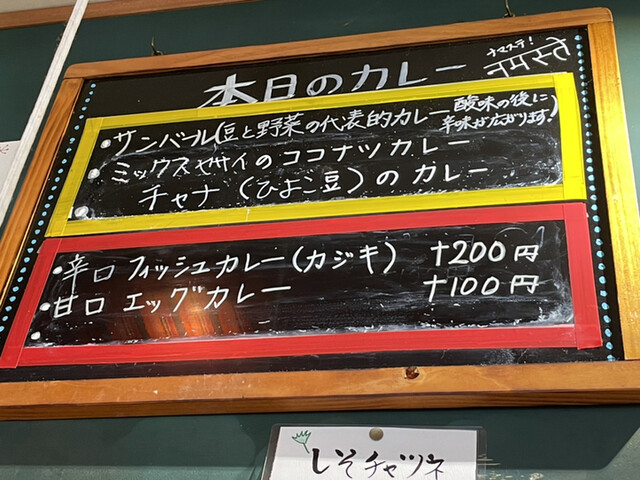 本日のカレー
ナマステ!
・サンバール(豆と野菜の代表的カレー 酸味の後に辛味が広がります!)
・ミックスヤサイのココナツカレー
・チャナ(ひよこ豆)のカレー
・辛口 フィッシュカレー(カジキ) +200円
・甘口 エッグカレー +100円
しそチャツネ